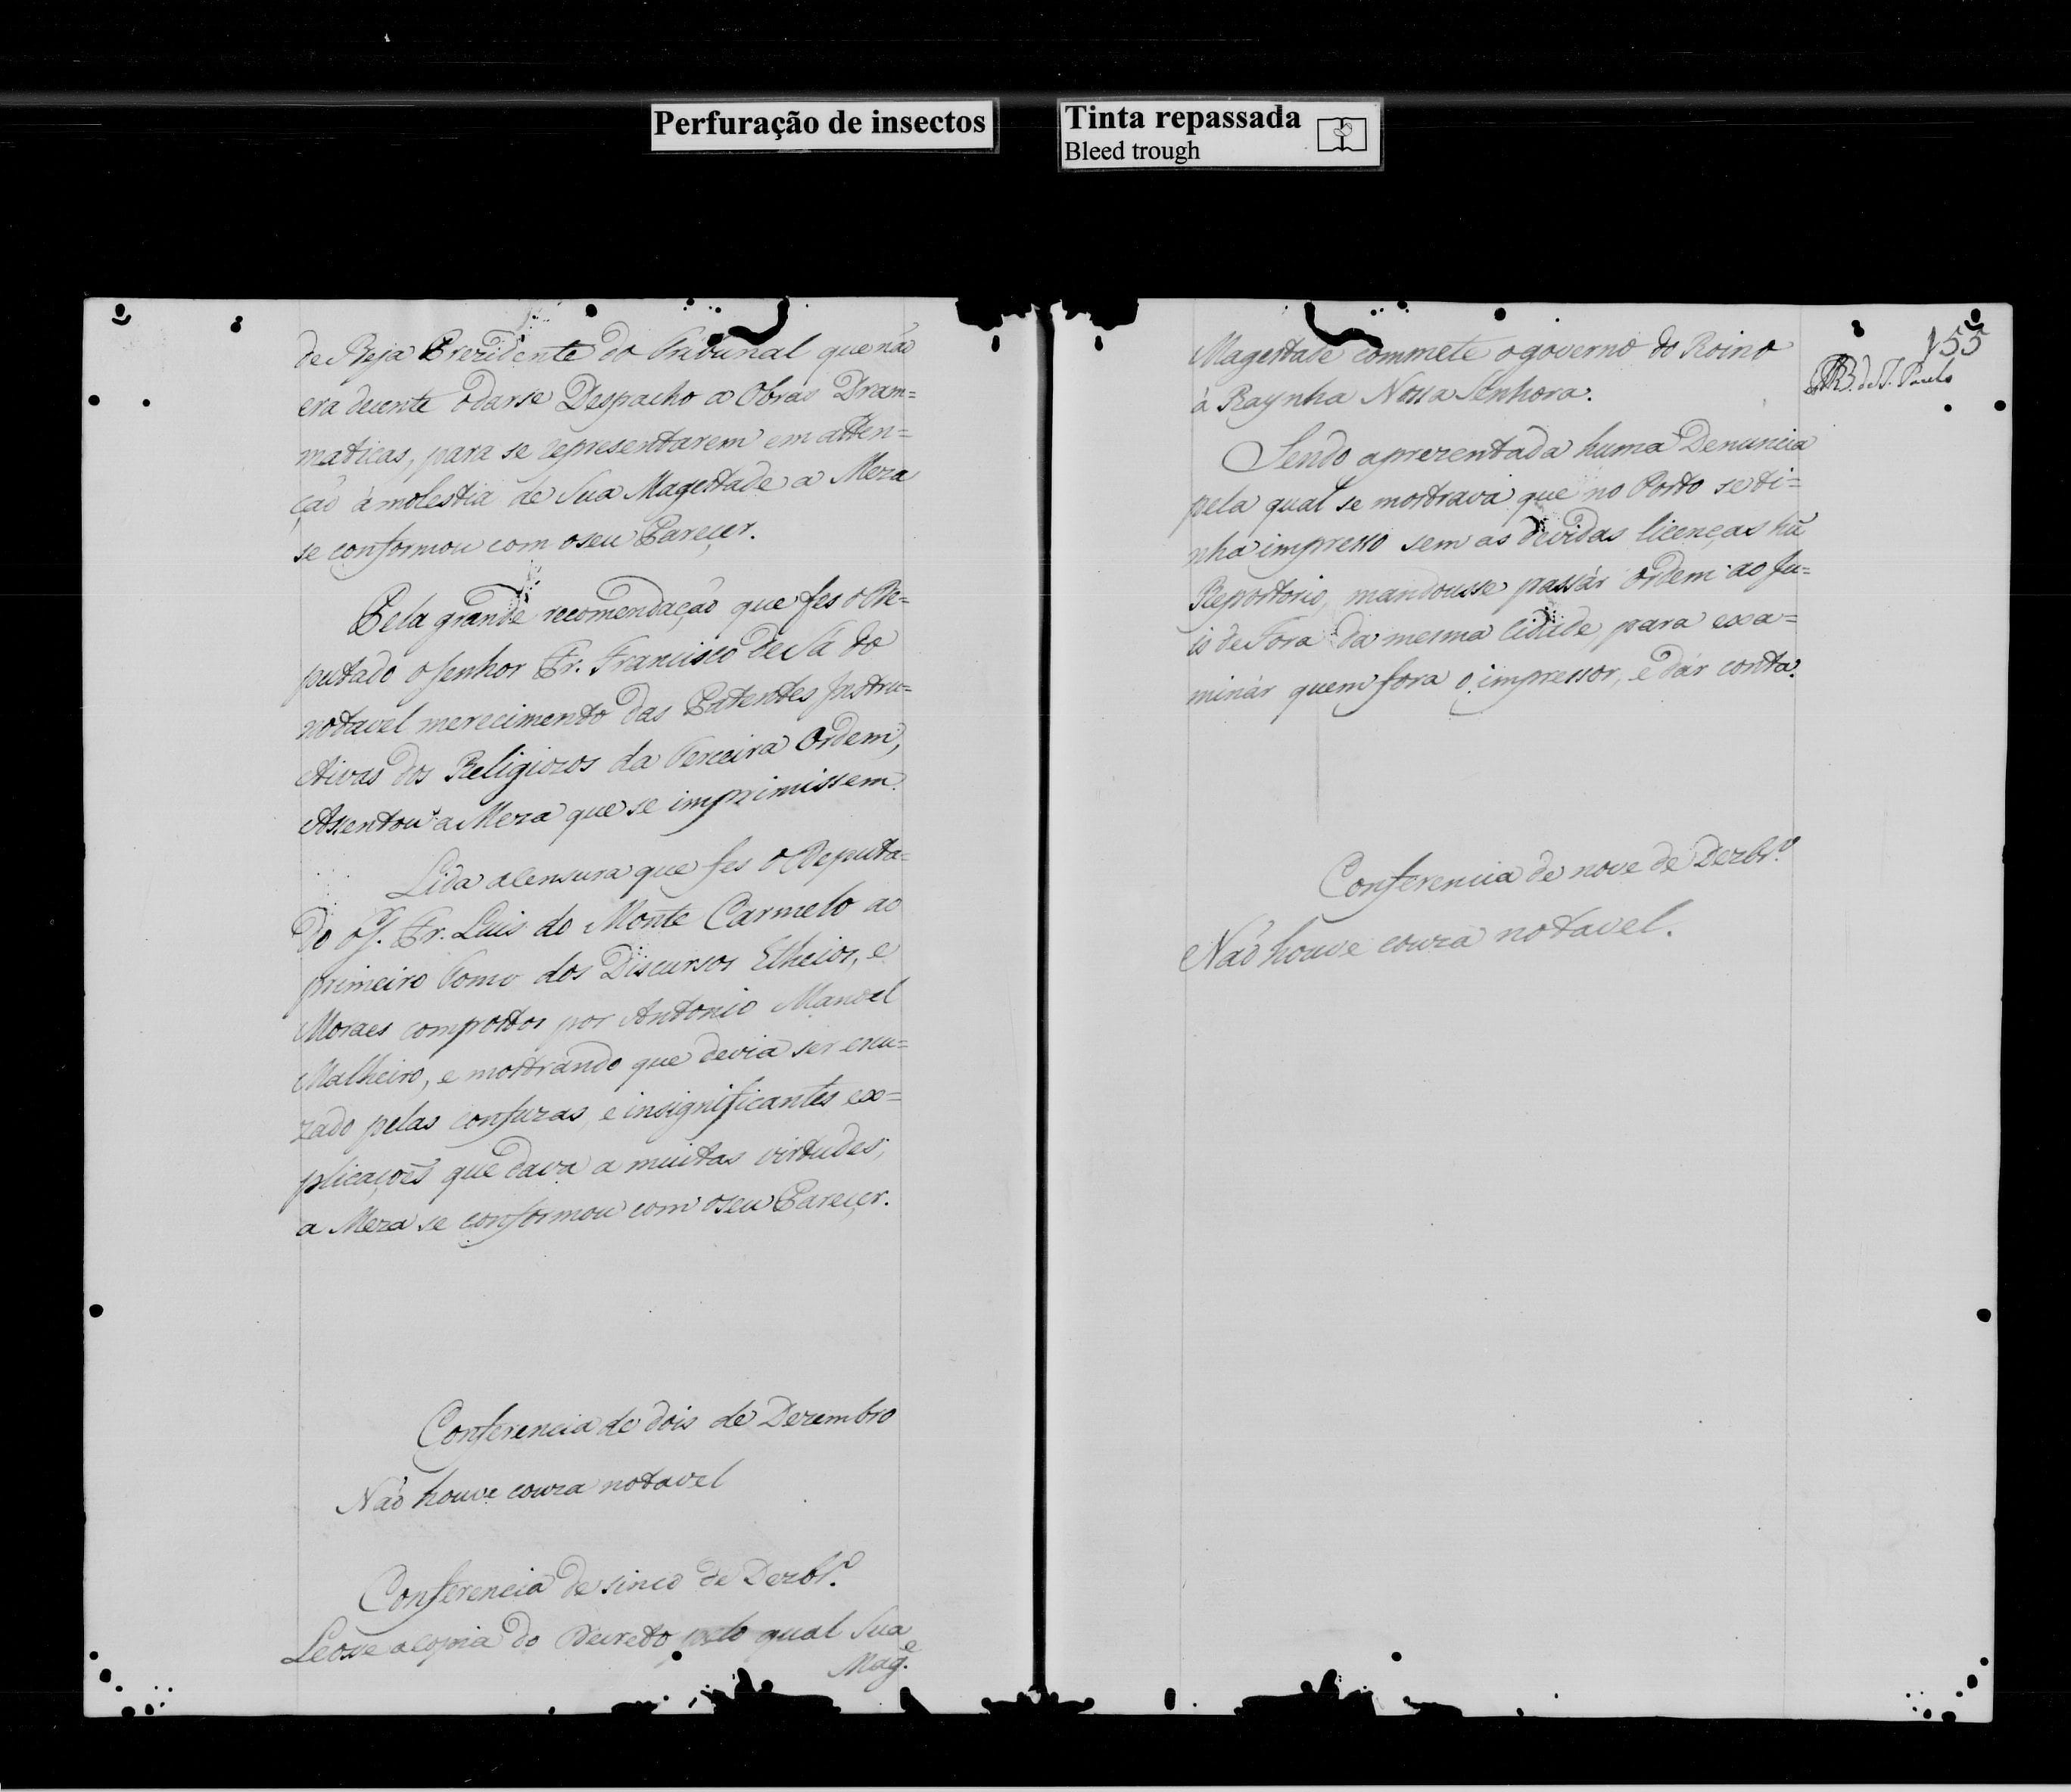 Perfuração de insectos
Tinta repassada
Bleed trough
de Beja Prezidente do Tribunal que não
era decente o darse Despacho a Obras Dram=
maticas, para se representarem em atten=
ção à molestia de Sua Magestade a Meza
se conformou com o seu Pareçer.
Pela grande recomendação que fes o De=
putado o Senhor Fr. Francisco de Sá do
notavel merecimento das Patentes Instru=
ctivas dos Religiozos da Terceira Ordem,
Assentou a Meza que se imprimissem.
Lida a Censura que fes o Deputa=
do o S. Fr. Luis do Monte Carmelo ao
primeiro Tomo dos Discursos Etheios, e
Moraes compostos por Antonio Manoel
Malheiro, e mostrando que devia ser excu=
zado pelas confuzas, e insignificantes ex=
plicaçoẽs que dava a muitas virtudes;
a Meza se conformou com o seu Pareçer.
Conferencia de dois de Dezembro
Não houve couza notavel
Conferencia de sinco de Dezbr.º
Leose a Copia do Decreto pelo qual Sua
Mag.e
155
Magestade commete o governo do Reino
à Raynha Nossa Senhora.
B. de S. Paulo
Sendo aprezentada huma Denuncia
pela qual se mostrava que no Porto se ti=
nha impresso sem as devidas licenças hũ
Reportorio, mandousse passár Ordem ao Ju=
is de Fora da mesma Cidade para exa=
minár quem fora o impressor, e dár conta.
Conferencia de nove de Dezbr.º
Não houve couza notavel.